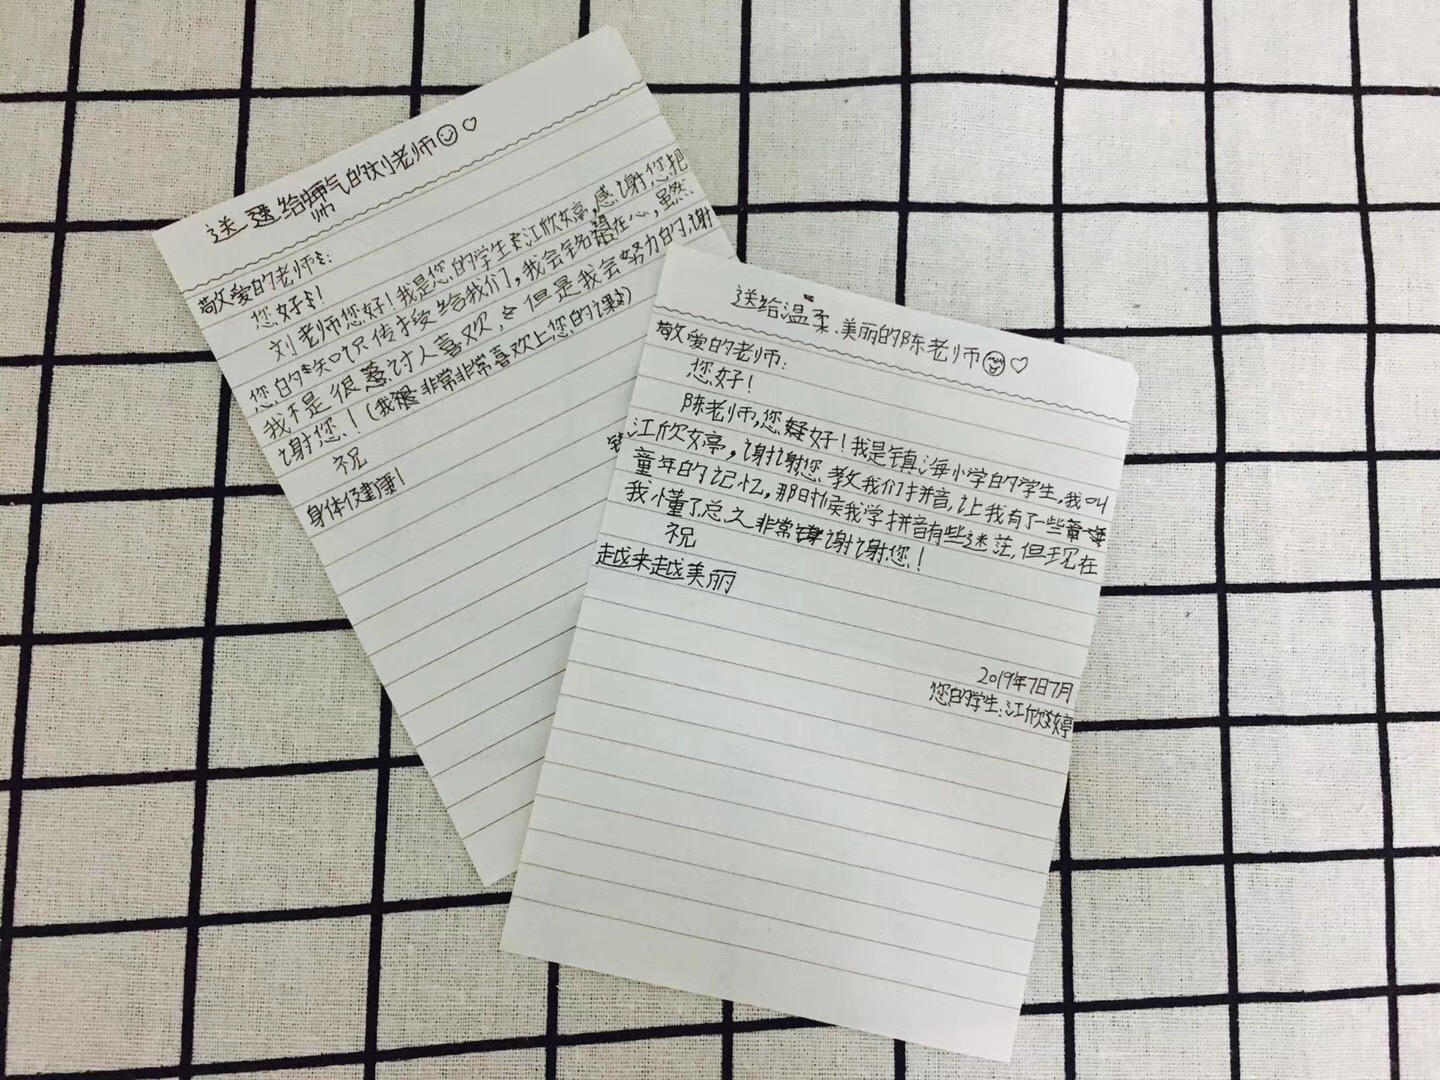 送给帅气的刘老师
敬爱的老师:
您好!
刘老师您好!我是您的学生江欣婷,感谢您把
您的知识传授给我们,我会铭在心,虽然
我不是很讨人喜欢,但是我会努力的,谢
谢您!(我很非常非常喜欢上您的课)
祝
身体健康!
送给温柔、美丽的陈老师
敬爱的老师:
您好!
陈老师,您好!我是镇海小学的学生,我叫
江欣婷,谢谢您教我们拼音,让我有了一些
童年的记忆,那时候我学拼音有些迷茫,但现在
我懂了总之非常谢谢您!
祝
越来越美丽
2019年7日7月
您的学生:江欣婷